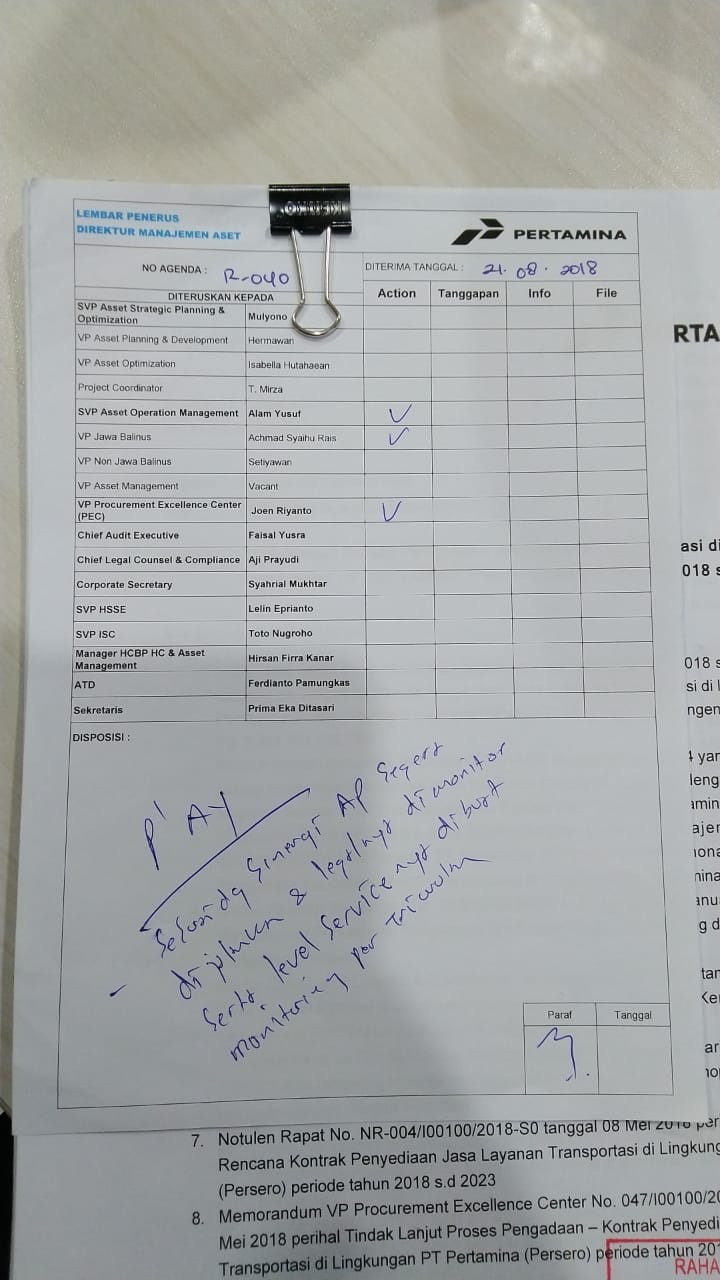 LEMBAR PENERUS
DIREKTUR MANAJEMEN ASET
PERTAMINA
NO AGENDA : R-040
DITERIMA TANGGAL : 21. 08. 2018
DITERUSKAN KEPADA
Action Tanggapan Info File
SVP Asset Strategic Planning & Optimization Mulyono
VP Asset Planning & Development Hermawan
VP Asset Optimization Isabella Hutahaean
Project Coordinator T. Mirza
SVP Asset Operation Management Alam Yusuf
VP Jawa Balinus Achmad Syaihu Rais
VP Non Jawa Balinus Setiyawan
VP Asset Management Vacant
VP Procurement Excellence Center (PEC) Joen Riyanto
Chief Audit Executive Faisal Yusra
Chief Legal Counsel & Compliance Aji Prayudi
Corporate Secretary Syahrial Mukhtar
SVP HSSE Lelin Eprianto
SVP ISC Toto Nugroho
Manager HCBP HC & Asset Management Hirsan Firra Kanar
ATD Ferdianto Pamungkas
Sekretaris Prima Eka Ditasari
DISPOSISI :
P' AY
- sinergi AP segera
& legalnya dimonitor
serta level service nya dibuat
monitoring per triwulan
Paraf Tanggal
RTA
asi di
018 s
018 s
si di l
ngen
7. Notulen Rapat No. NR-004/I00100/2018-S0 tanggal 08 Mei 2018 per
Rencana Kontrak Penyediaan Jasa Layanan Transportasi di Lingkung
(Persero) periode tahun 2018 s.d 2023
8. Memorandum VP Procurement Excellence Center No. 047/I00100/20
Mei 2018 perihal Tindak Lanjut Proses Pengadaan – Kontrak Penyedi
Transportasi di Lingkungan PT Pertamina (Persero) periode tahun 201
RAHA